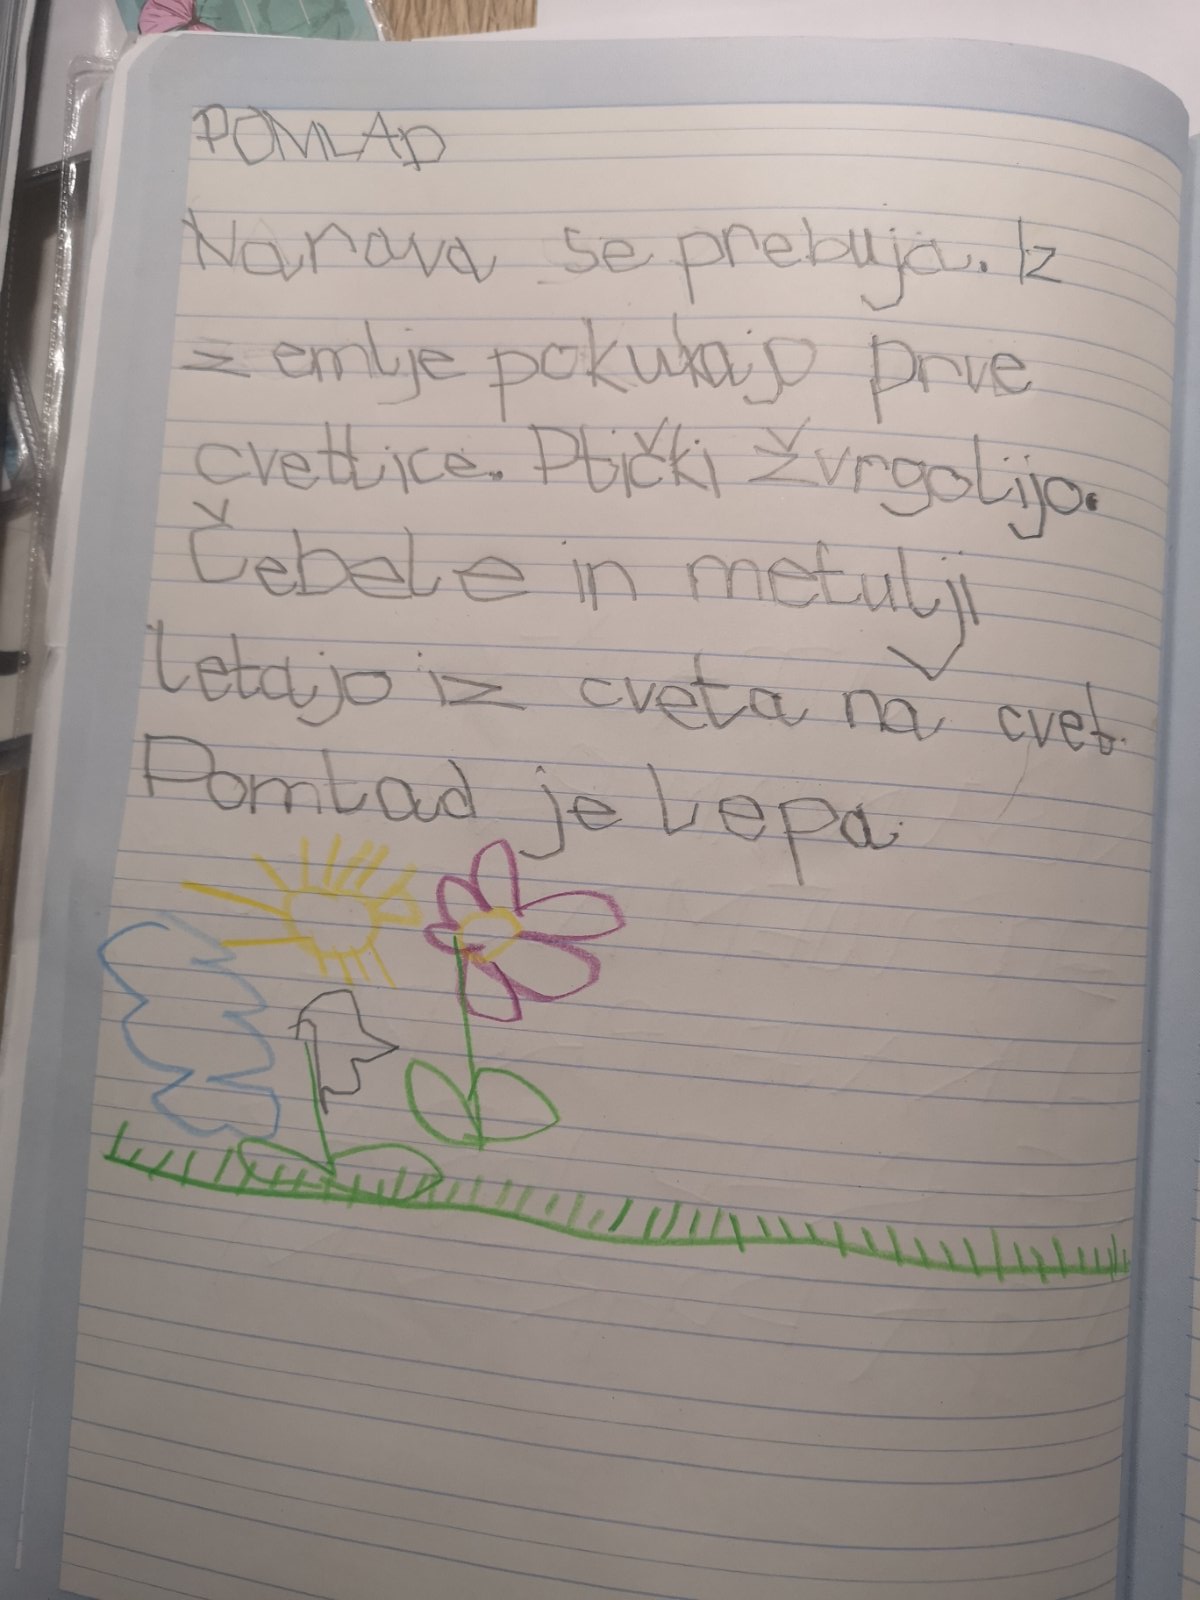 POMLAD
Narava se prebuja. Iz
zemlje pokukajo prve
cvetlice. Ptički žvrgolijo.
Čebele in metulji
letajo iz cveta na cvet.
Pomlad je lepa.